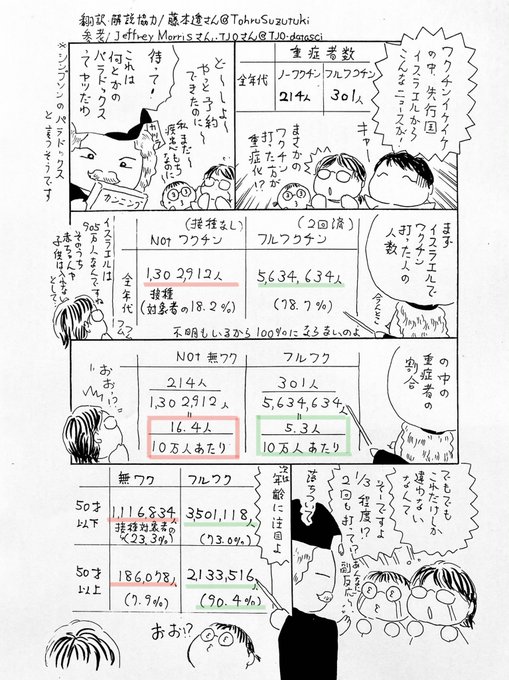 翻訳・解説協力/藤本達さん@TohruSuzutuki
参考/Jeffrey Morrisさん、TJOさん@TJO-datasci
ワクチンイケイケ
の中、先行国
イスラエルから
こんなニュースが!
キャー
重症者数
全年代
ノーワクチン
フルワクチン
214人
301人
まさかの
ワクチン
打った方が
重症化!?
ど〜しよ〜
やっと予約
できたのに〜
私まだ〜
疾患もちなのに〜
待って!
これは
何とかの
パラドックス
ってヤツだわ
カンニング
*シンプソンのパラドックス
と言うそうです
まず
イスラエルで
ワクチン
打った人の
人数
(接種なし)
(2回済)
Not ワクチン
フルワクチン
全年代
1,302,912人
5,634,634人
接種
(対象者の18.2%)
(78.7%)
不明もいるから100%にならないのよ
イスラエルは
905万人なんですね
そのうち
赤ちゃんや
子供は入れない
として、
フムフム
の中の
重症者の
割合
Not 無ワク
フルワク
214人
1,302,912人
301人
5,634,634人
=
=
16.4人
10万人あたり
5.3人
10万人あたり
おお!?
でもでも
これだけしか
違わない
なんて
そーですよ
1/3程度!?
2回も打って!?
あんなに副反応
落ちついて
次は
年齢に注目よ
無ワク
フルワク
50才
以下
1116,834人
接種対象者の
(23.3%)
3501,118人
(73.0%)
50才
以上
186,078人
(7.9%)
2133,516人
(90.4%)
おお!?